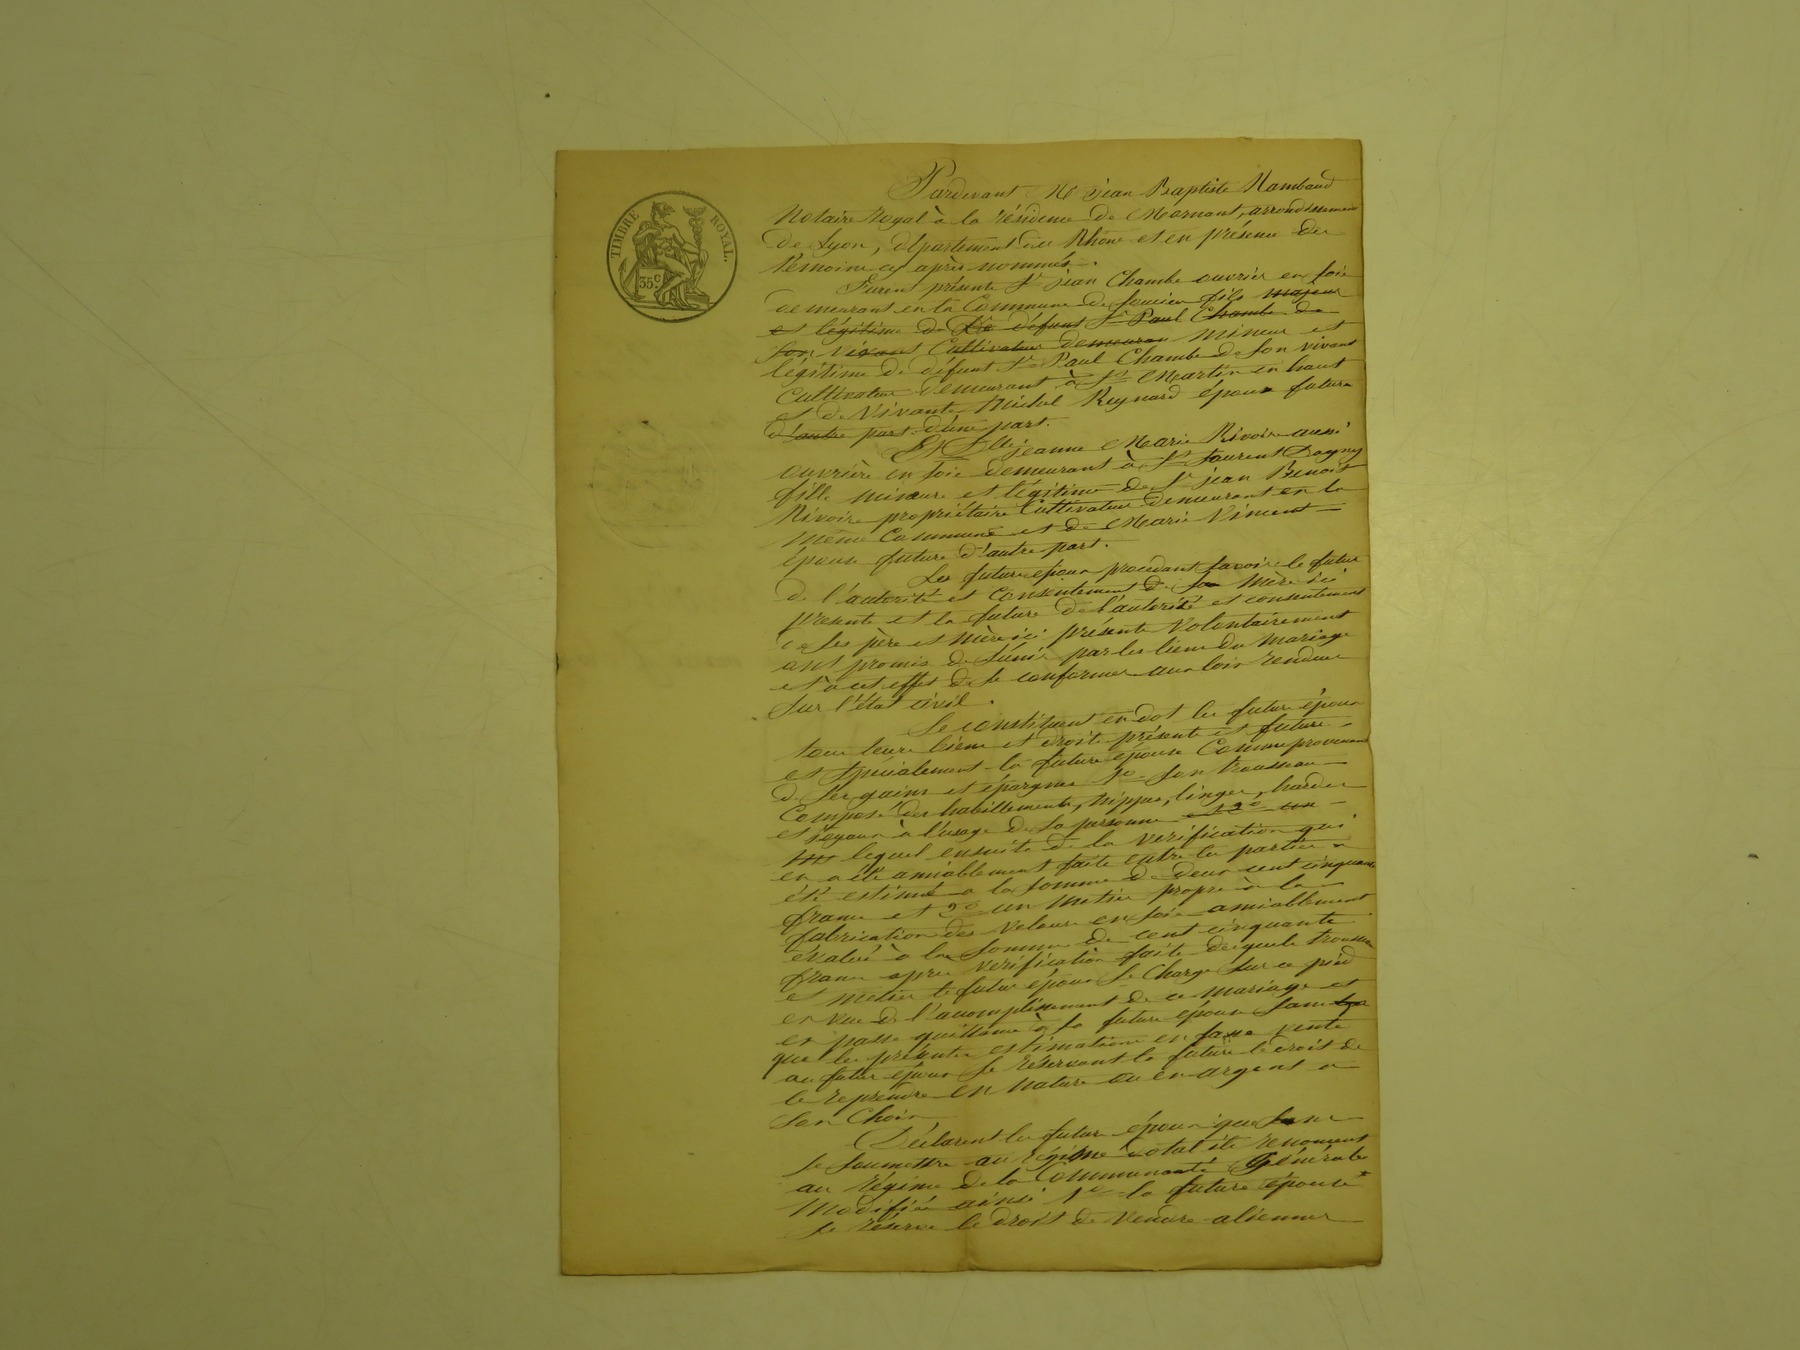 TIMBRE ROYAL.
35c
Pardevant Me jean Baptiste Rambaud
Notaire Royal à la résidence de Mornant, arrondissement
de Lyon, département du Rhône et en présence des
témoins cy après nommés.
Furent présents Sr jean Chambe ouvrier en soie
demeurant en la Commune de Soucieu fils majeur
et légitime de défunt Sr Paul Chambe de
son vivant Cultivateur demeurant mineur et
légitime de défunt Sr Paul Chambe de son vivant
cultivateur demeurant à St Martin en haut
et de vivante Michel Reynard époux futur
d'autre part. d'une part.
Et Dlle jeanne Marie Rivoire aussi
ouvrière en soie demeurant à St Laurent Dagny
fille mineure et légitime de Sr jean Benoit
Rivoire propriétaire Cultivateur demeurant en la
même Commune et de Marie Vincent
épouse future d'autre part.
Les futurs époux procédant savoir le futur
de l'autorité et consentement de sa mère ici
présente et la future de l'autorité et consentement
de ses père et mère ici présents volontairement
ont promis de s'unir par les liens du mariage
et à cet effet de se conformer aux lois rendues
sur l'état civil.
Se constituent en dot les futurs époux
tous leurs biens et droits présents et futurs
et spécialement la future épouse Comme provenant
de ses gains et épargnes 1o son trousseau
Composé des habillements, nippes, linges, hardes
et joyaux à l'usage de sa personne et 2o un
lequel ensuite de la vérification qui
en a été amiablement faite entre les parties a
été estimé a la somme de deux cent cinquante
francs et 2o un metier propre à la
fabrication des velours en soie amiablement
évalué à la somme de cent cinquante
francs apres verification faite desquels trousseau
et metier le futur époux se charge sur ce pied
en vue de l'accomplissement de ce mariage et
en passe quittance à sa future épouse sans
que les présentes estimations en fasse vente
au futur époux se réservant la future le droit de
le reprendre en nature ou en argent a
son Choix
Déclarent les futurs époux que sans
se soumettre au régime dotal ils renoncent
au régime de la Communauté Générale
modifié ainsi 1o la future épouse
se réserve le droit de vendre alienner